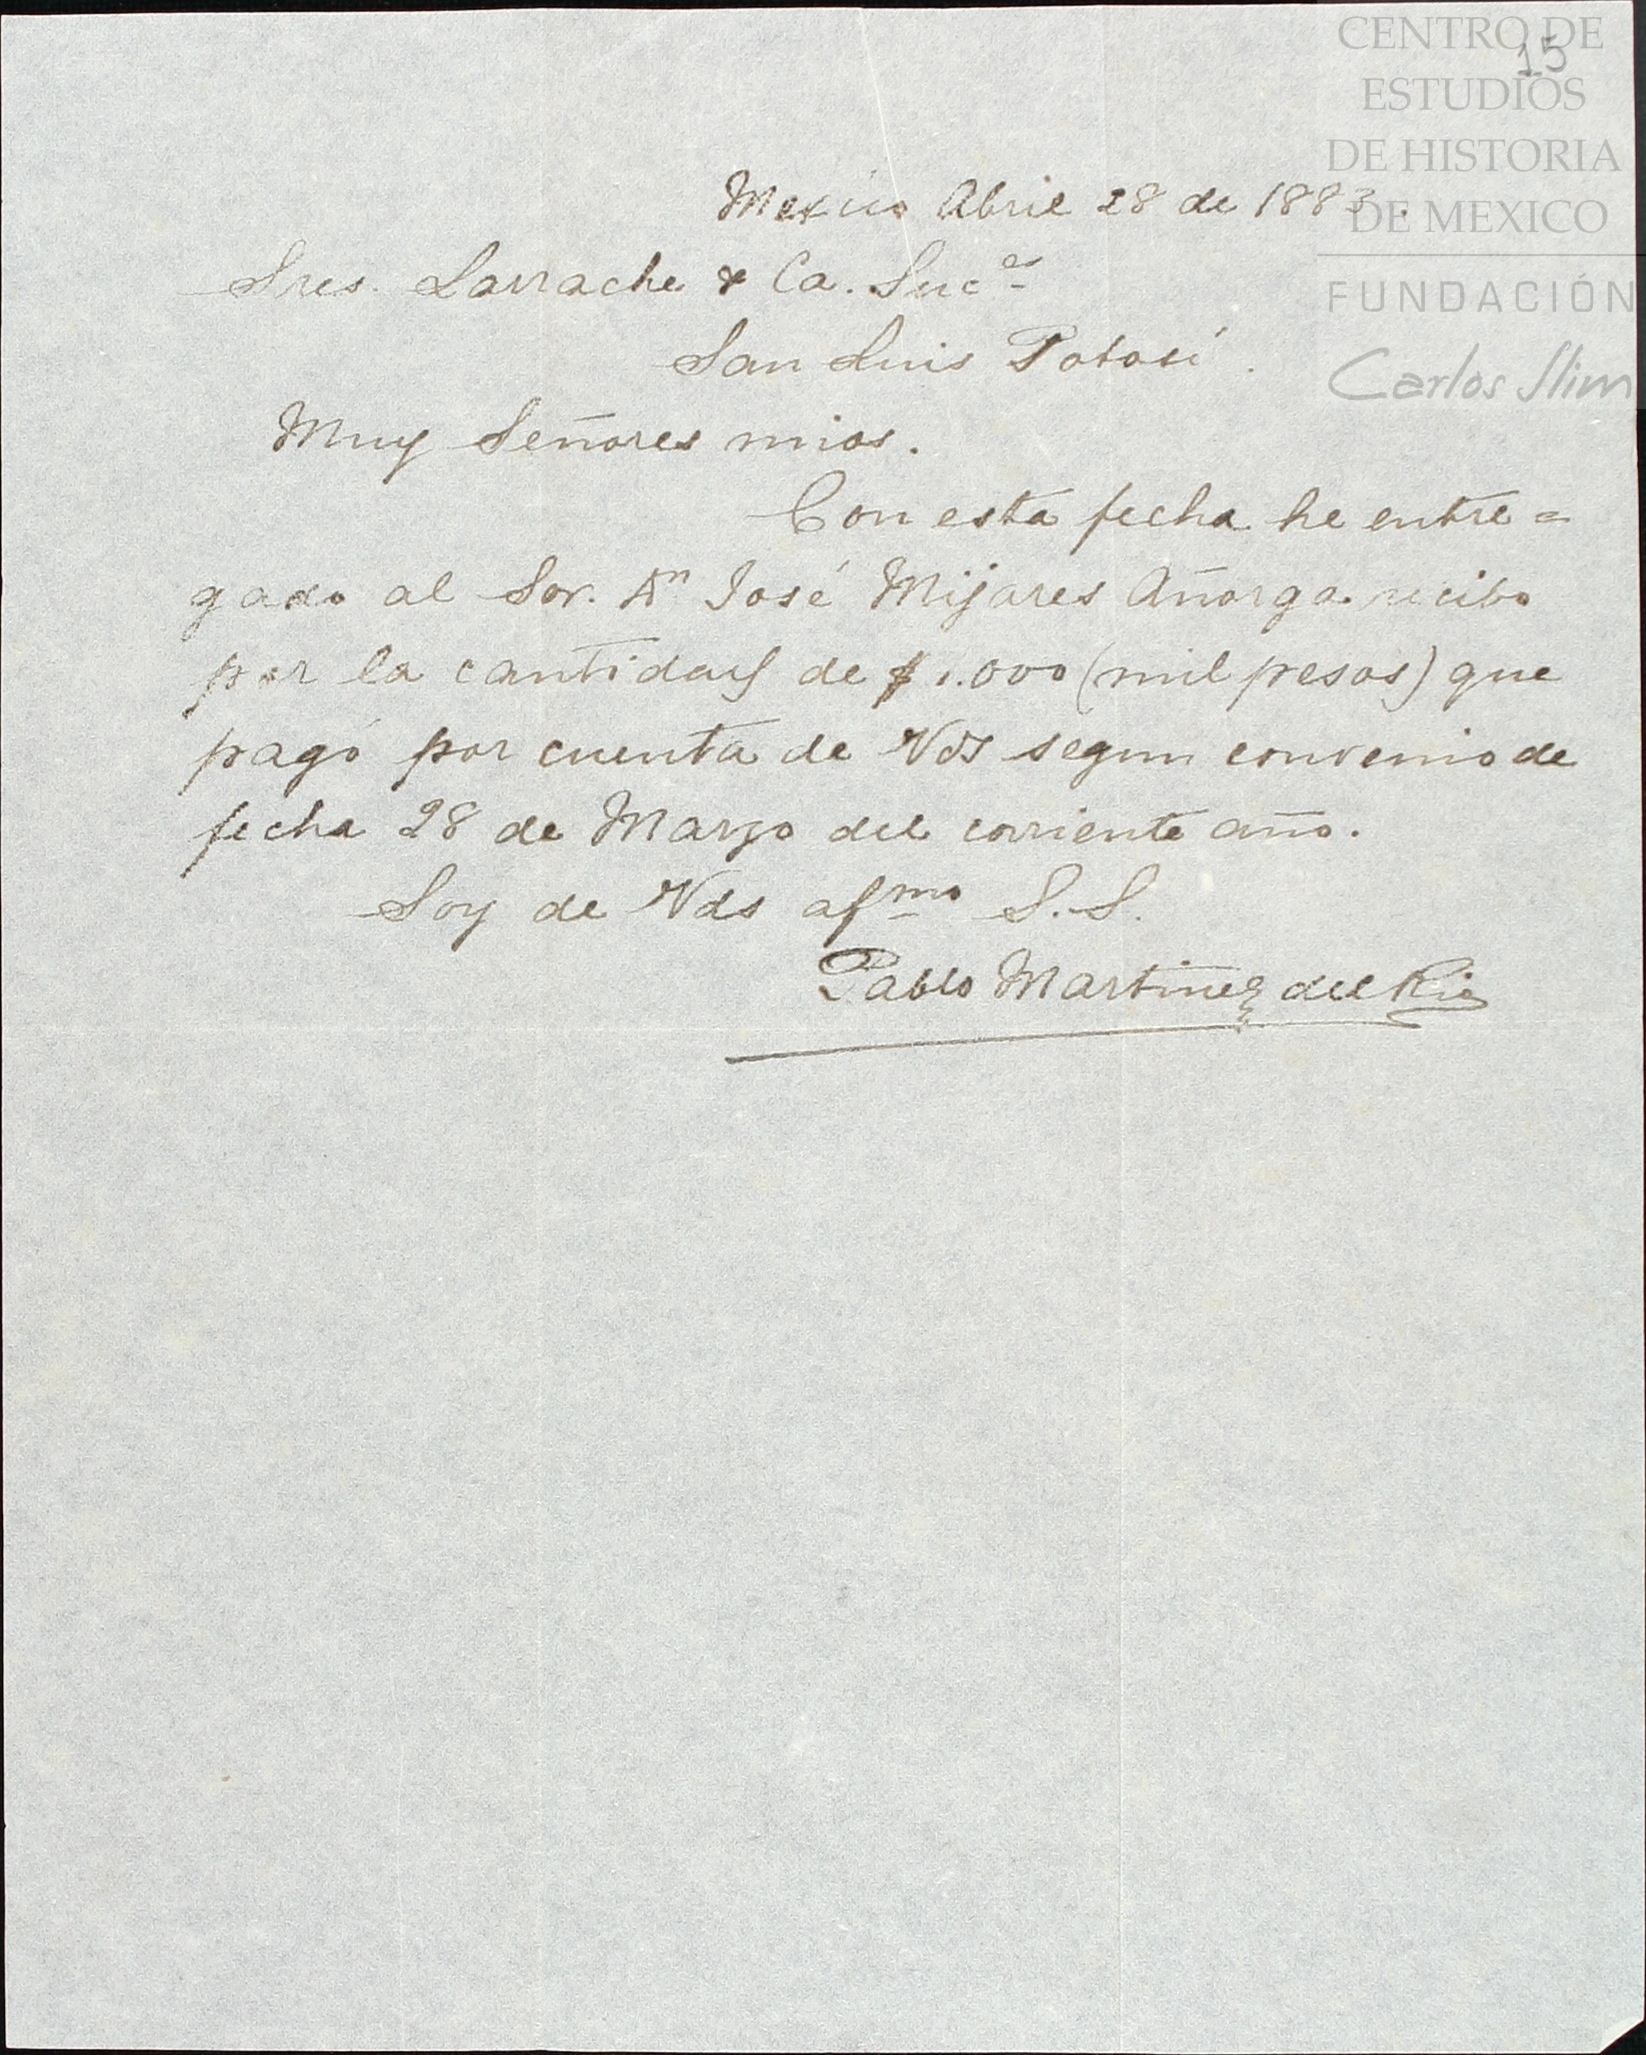 CENTRO DE
ESTUDIOS
DE HISTORIA
DE MEXICO
FUNDACIÓN
Carlos Slim
15
Mexico Abril 28 de 1883.
Sres. Larrache & Ca. Sucs
San Luis Potosí.
Muy Señores mios.
Con esta fecha he entre=
gado al Sor. Dn José Mijares Añorga recibo
por la cantidad de $1.000 (mil pesos) que
pagó por cuenta de Vds segun convenio de
fecha 28 de Marzo del corriente año.
Soy de Vds afmo S.S.
Pablo Martinez del Rio